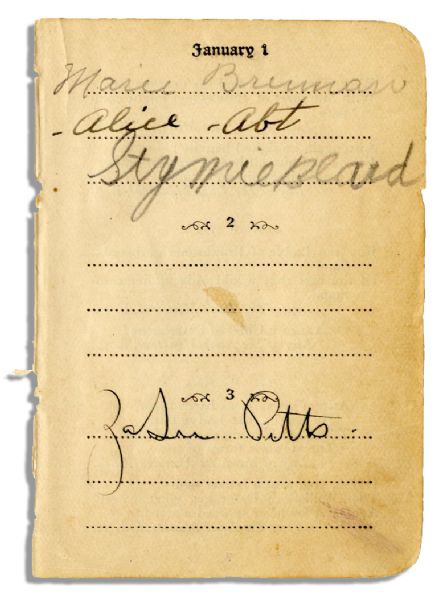 January 1
Marie Brennan
Alice Abt
Stymie Beard
2
3
ZaSu Pitts